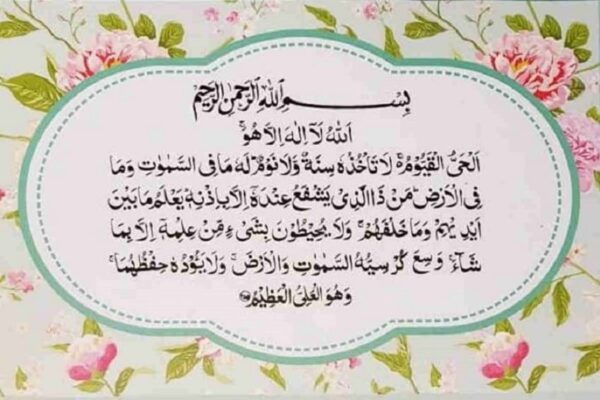 بِسْمِ اللهِ الرَّحْمٰنِ الرَّحِيْمِ
اَللهُ لَآ اِلٰهَ اِلَّا هُوَ ۚ
اَلْحَيُّ الْقَيُّوْمُ ۚ لَا تَاْخُذُهٗ سِنَةٌ وَّلَا نَوْمٌ ؕ لَهٗ مَا فِی السَّمٰوٰتِ وَمَا
فِی الْاَرْضِ ؕ مَنْ ذَا الَّذِیْ يَشْفَعُ عِنْدَهٗۤ اِلَّا بِاِذْنِهٖ ؕ يَعْلَمُ مَا بَيْنَ
اَيْدِيْهِمْ وَمَا خَلْفَهُمْ ۚ وَلَا يُحِيْطُوْنَ بِشَیْءٍ مِّنْ عِلْمِهٖۤ اِلَّا بِمَا
شَآءَ ۚ وَسِعَ كُرْسِيُّهُ السَّمٰوٰتِ وَالْاَرْضَ ۚ وَلَا يَـُٔوْدُهٗ حِفْظُهُمَا ۚ
وَهُوَ الْعَلِیُّ الْعَظِيْمُ